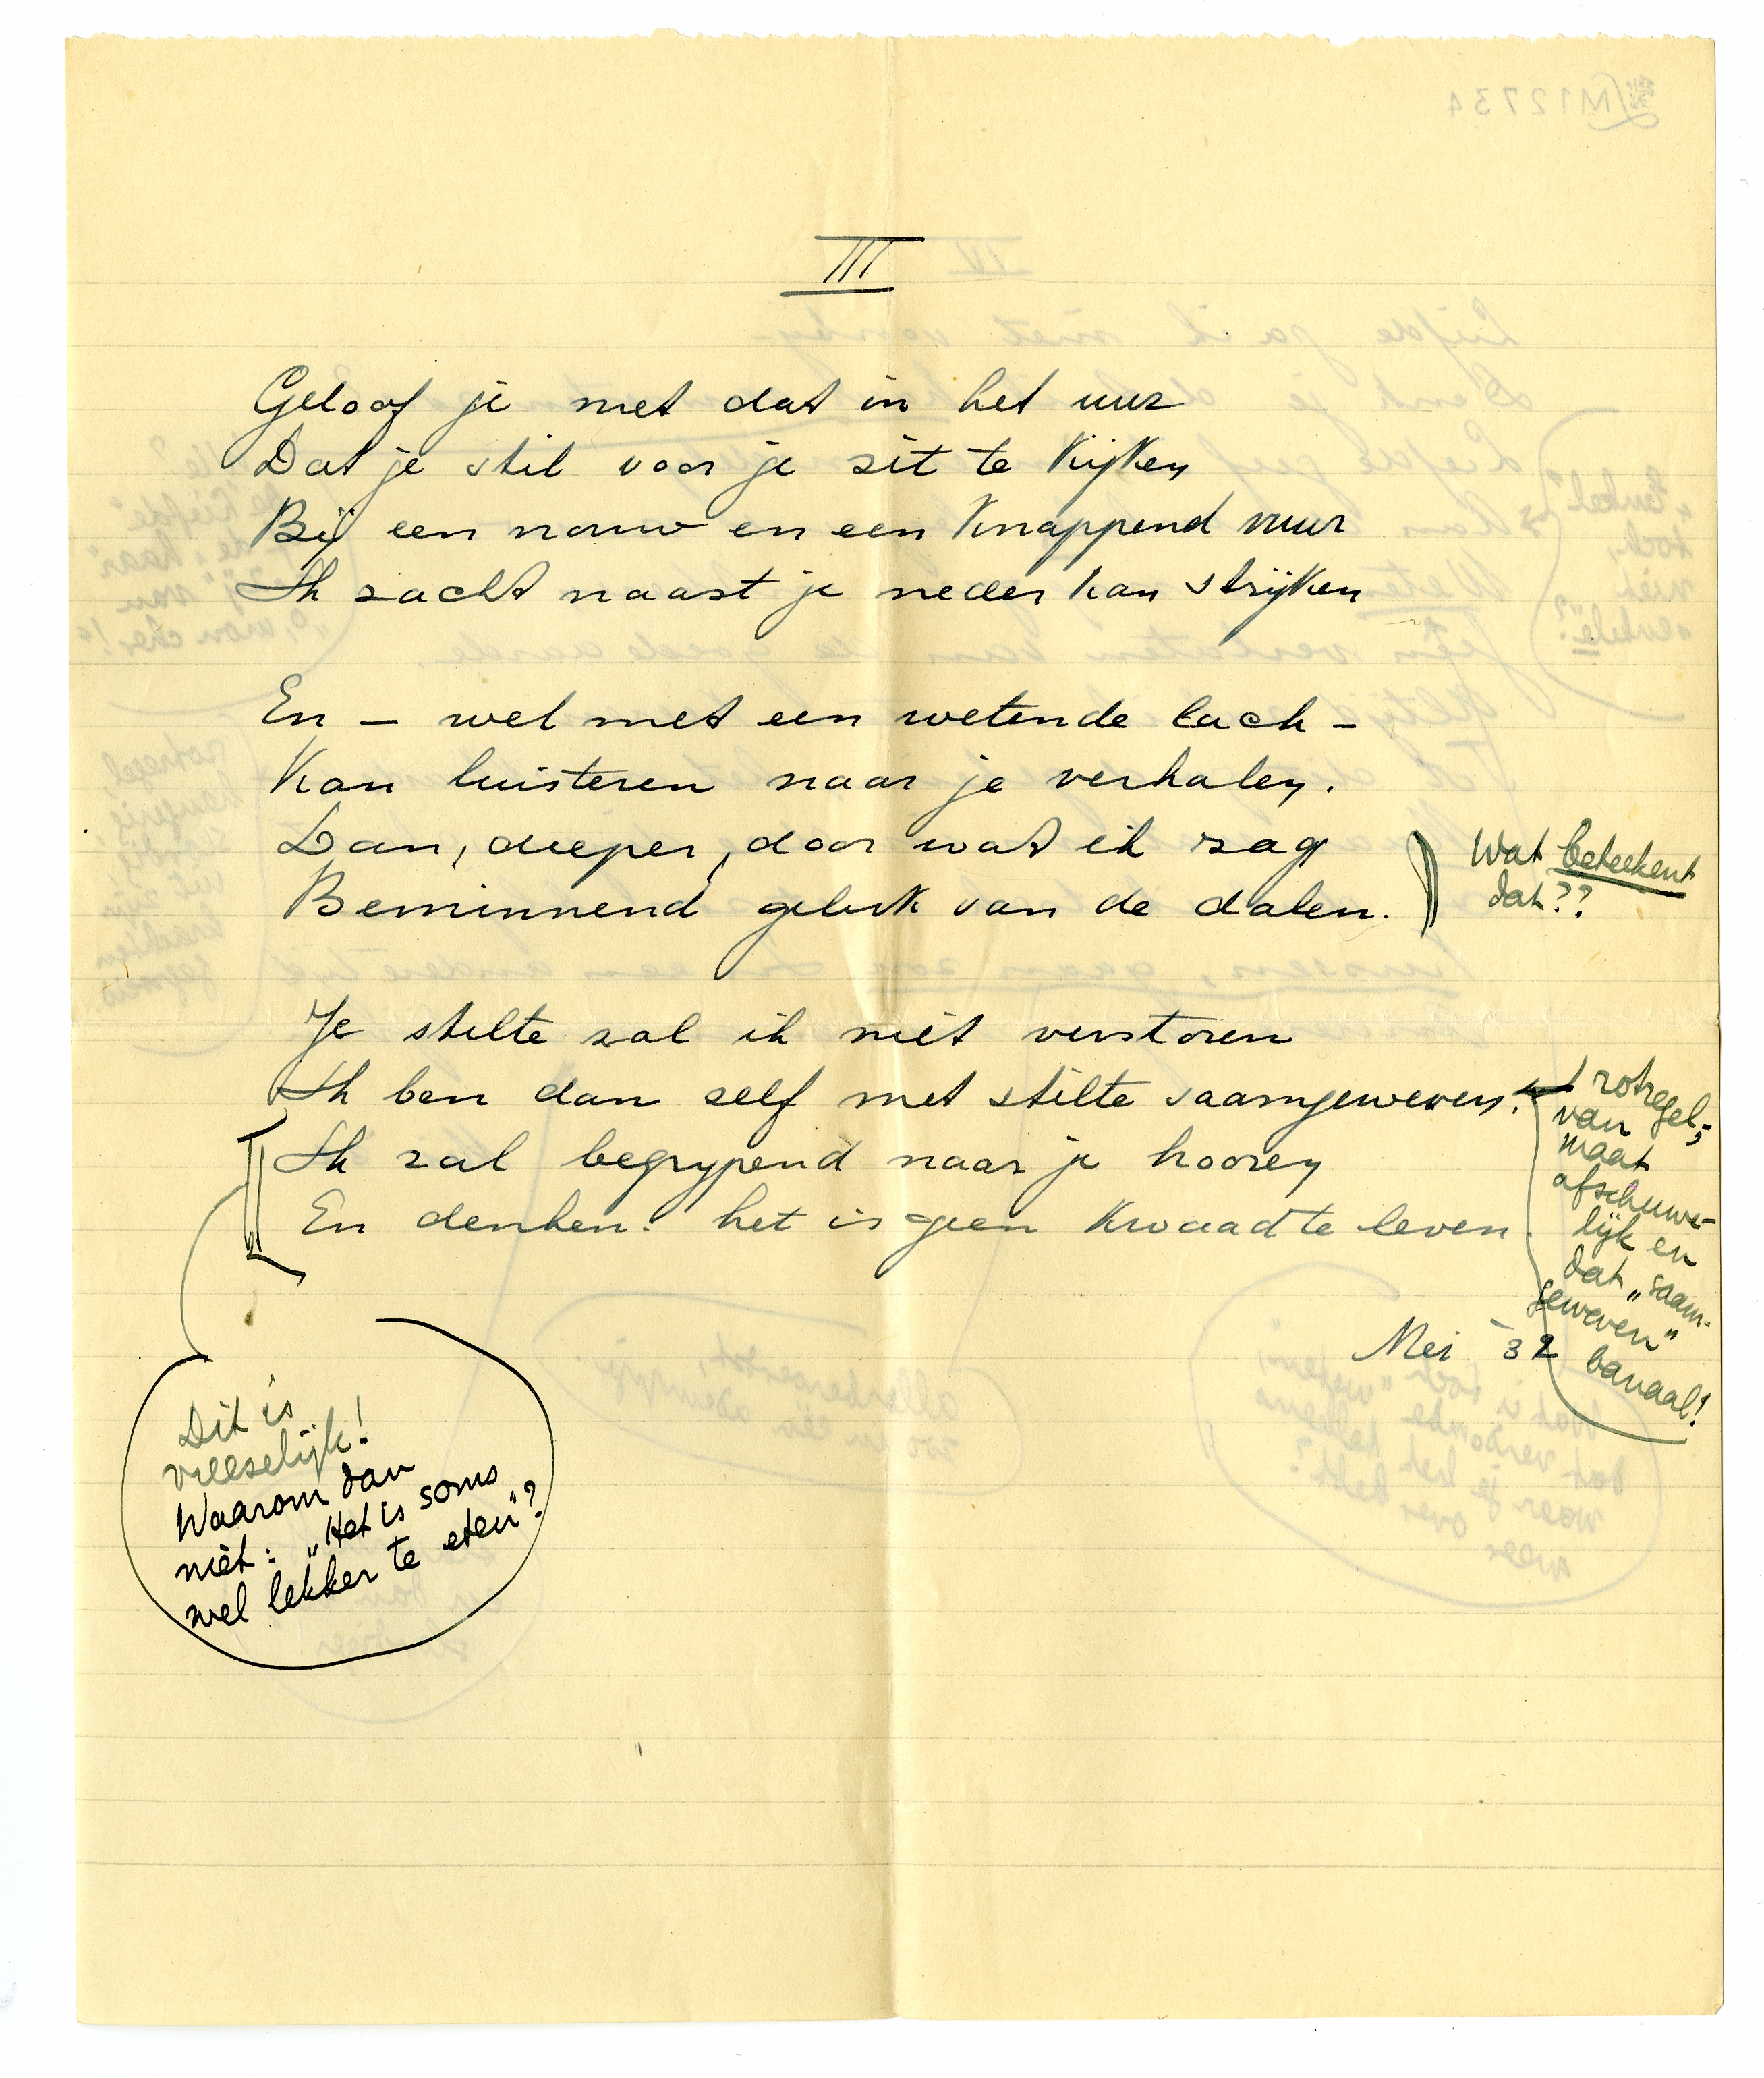 III
Geloof je niet dat in het uur
Dat je stil voor je zit te kijken
Bij een vrouw en een knappend vuur
Ik zacht naast je neder kan strijken
En – wel met een wetende lach –
Kan luisteren naar je verhalen.
Dan, dieper, door wat ik zag
Beminnend geluk van de dalen.
Wat beteekent
dat??
Je stilte zal ik niet verstoren
Ik ben dan zelf met stilte saamgeweven.
Ik zal begrypend naar je hooren
En denken: het is geen kwaad te leven.
rotregel,
van
maat
afschuwe-
lijk en
dat „saam-
geweven"
banaal!
Mei '32
Dit is
vreeselijk!
Waarom dan
niet: „Het is soms
wel lekker te eten"?